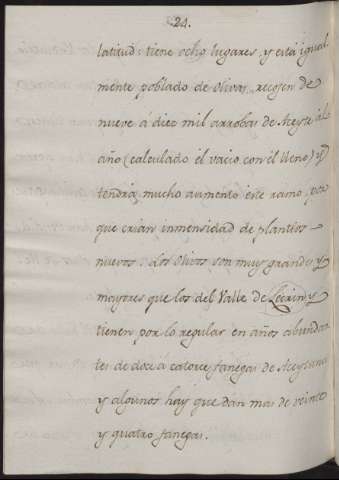 24.
latitud: tiene ocho lugares, y está igual
mente poblado de olivos, recojen de
nueve á diez mil arrobas de Aceyte al
año (calculado el vacio con el lleno) y
tendrá mucho aumento este ramo, por
que crian inmensidad de plantíos
nuevos: Los olivos son muy grandes y
mayores que los del Valle de Lecrin, y
tienen por lo regular en años abundan
tes de doce á catorce fanegas de Aceytuna
y algunos hay que dán mas de veinte
y quatro fanegas.